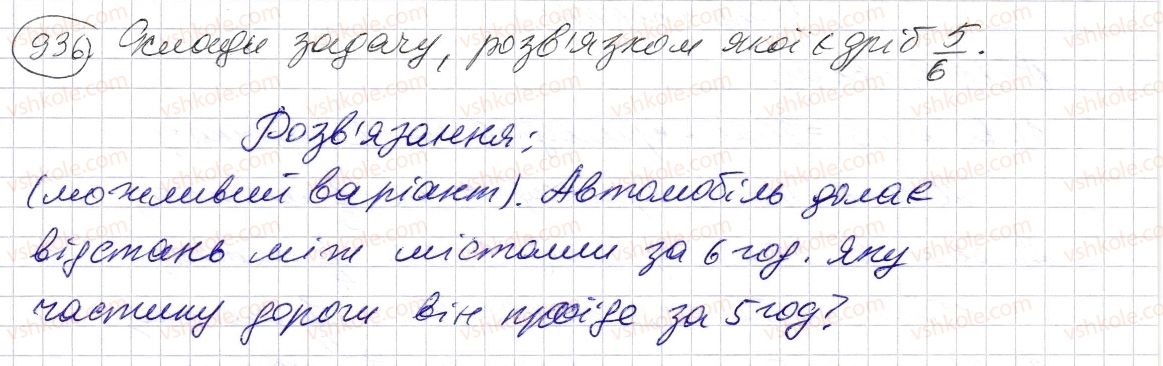 936) Склади задачу, розв'язком якої є дріб 5/6.
Розв'язання:
(можливий варіант). Автомобіль долає
відстань між містами за 6 год. Яку
частину дороги він проїде за 5 год?